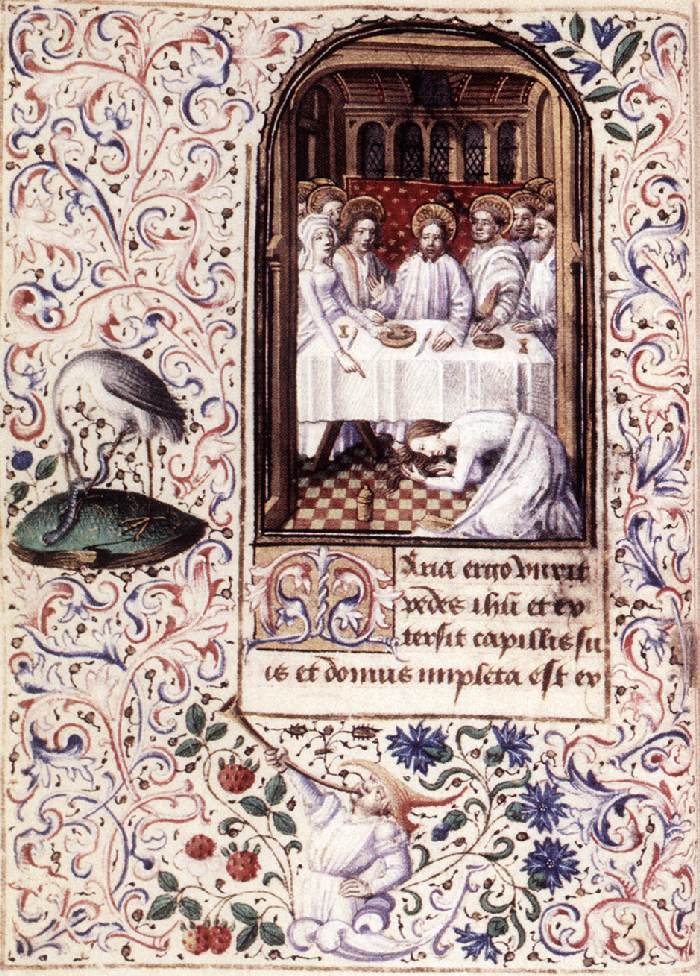 Maria ergo vnxit
pedes ihu et ex
tersit capillis su
is et domus impleta est ex